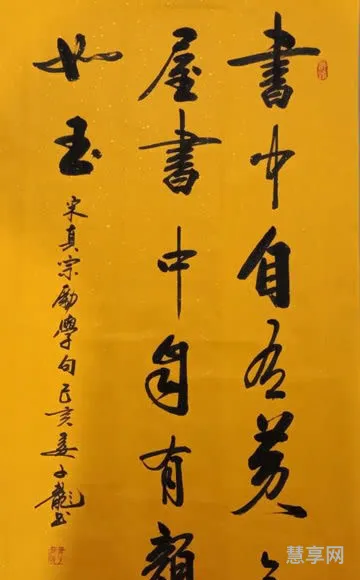 書中自有黄
屋書中自有顏
如玉
宋真宗勵學句己亥姜子龍書
慧享网